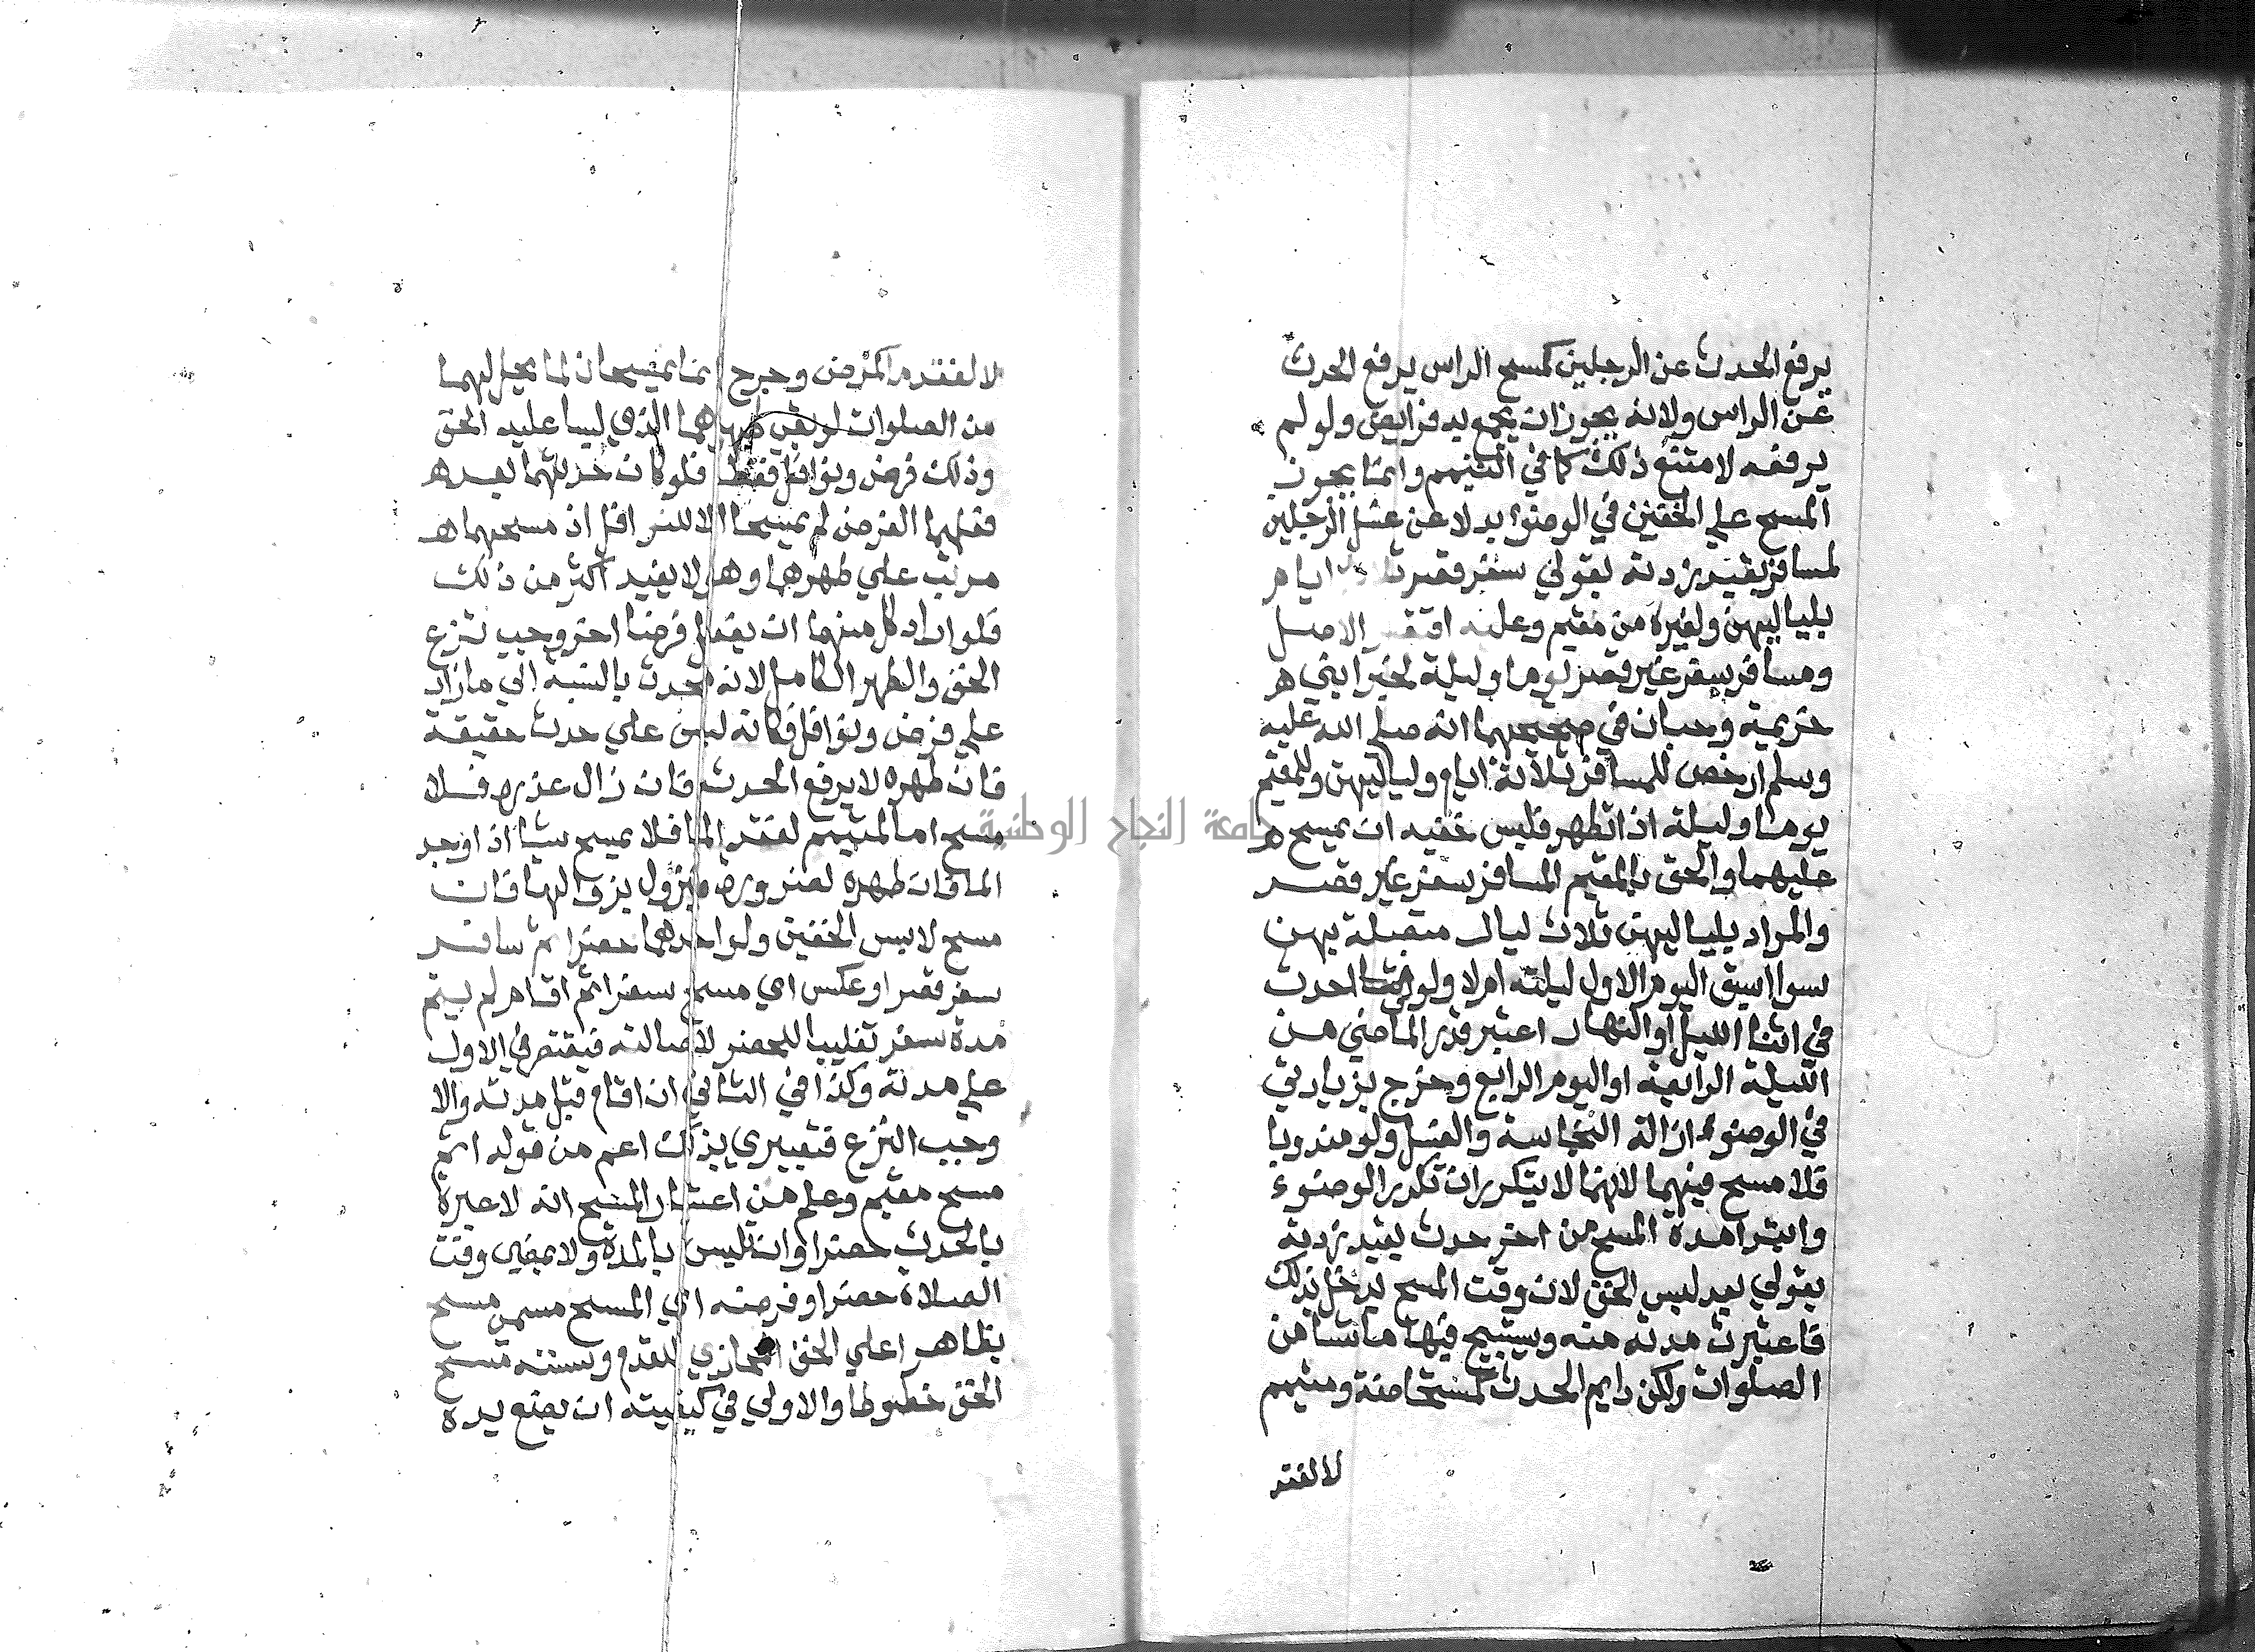 يرفع الحدث عن الرجلين كمسح الراس يرفع الحدث
عن الراس ولانه يجوز ان يجمع به فرايض ولو لم
يرفعه لامتنع ذلك كما في التيمم وانما يجوز
المسح على الخفين في الوضوء بدلا عن غسل الرجلين
لمسافر بقيد زدته بقولي سفر قصر ثلاثة ايام
بلياليهن ولغيره من مقيم وعليه اقتصر الاصل
ومسافر سفر غير قصر يوما وليلة لخبر ابني
خزيمة وحبان في صحيحهما انه صلى الله عليه
وسلم ارخص للمسافر ثلاثة ايام ولياليهن وللمقيم
يوما وليلة اذا تطهر فلبس خفيه ان يمسح
عليهما والحق بالمقيم المسافر سفر غير قصر
والمراد بلياليهن ثلاث ليال متصلة بهن
سوا اسبق اليوم الاول ليلته ام لا ولو احدث
في اثنا الليل او النهار اعتبر قدر الماضي من
الليلة الرابعة او اليوم الرابع وخرج بزيادتي
في الوضوء ازالة النجاسة والغسل ولو مندوبا
فلا مسح فيهما لانهما لا يتكرران تكرر الوضوء
وابتدا مدة المسح من اخر حدث بقيد زدته
بقولي بعد لبس الخف لان وقت المسح يدخل بذلك
فاعتبرت مدته منه ويستبيح فيها ما شا من
الصلوات ولكن دايم الحدث كمستحاضة ومتيمم
لا لفقد
لا لفقد ما كمرض وجرح انما يمسحان لما يحل لهما
من الصلوات لو بقي طهرهما الذي لبسا عليه الخف
وذلك فرض ونوافل فقط فلو كان حدثهما بعد
فعلهما الفرض لم يمسحا الا للنوافل اذ مسحهما
مرتب على طهرهما وهو لا يفيد اكثر من ذلك
فلو اراد كل منهما ان يفعل فرضا اخر وجب نزع
الخف والطهر الكامل لانه محدث بالنسبة الى ما زاد
على فرض ونوافل فكانه لبس على حدث حقيقة
فان طهره لا يرفع الحدث فان زال عذره فلا
مسح اما المتيمم لفقد الما فلا يمسح شيا اذا وجد
الما فان طهره لضرورة ويزول بزوالها فان
مسح لابس الخفين ولو احدهما حضرا ثم سافر
سفر قصر او عكس اي مسح سفرا ثم اقام لم يتم
مدة سفر تغليبا للحضر لاصالته فيقتصر في الاول
على مدته وكذا في الثاني ان اقام قبل مدته والا
وجب النزع فتعبيري بذلك اعم من قوله اتم
مسح مقيم وعلم من اعتبار المسح انه لا عبرة
بالحدث حضرا وان تلبس بالمدة ولا بمضي وقت
الصلاة حضرا وفرضه اي المسح مسمى مسح
بظاهر اعلى الخف المحاذي للقدم وسننه مسح
الخف خطوطا والاولى في كيفيته ان يضع يده
جامعة النجاح الوطنية